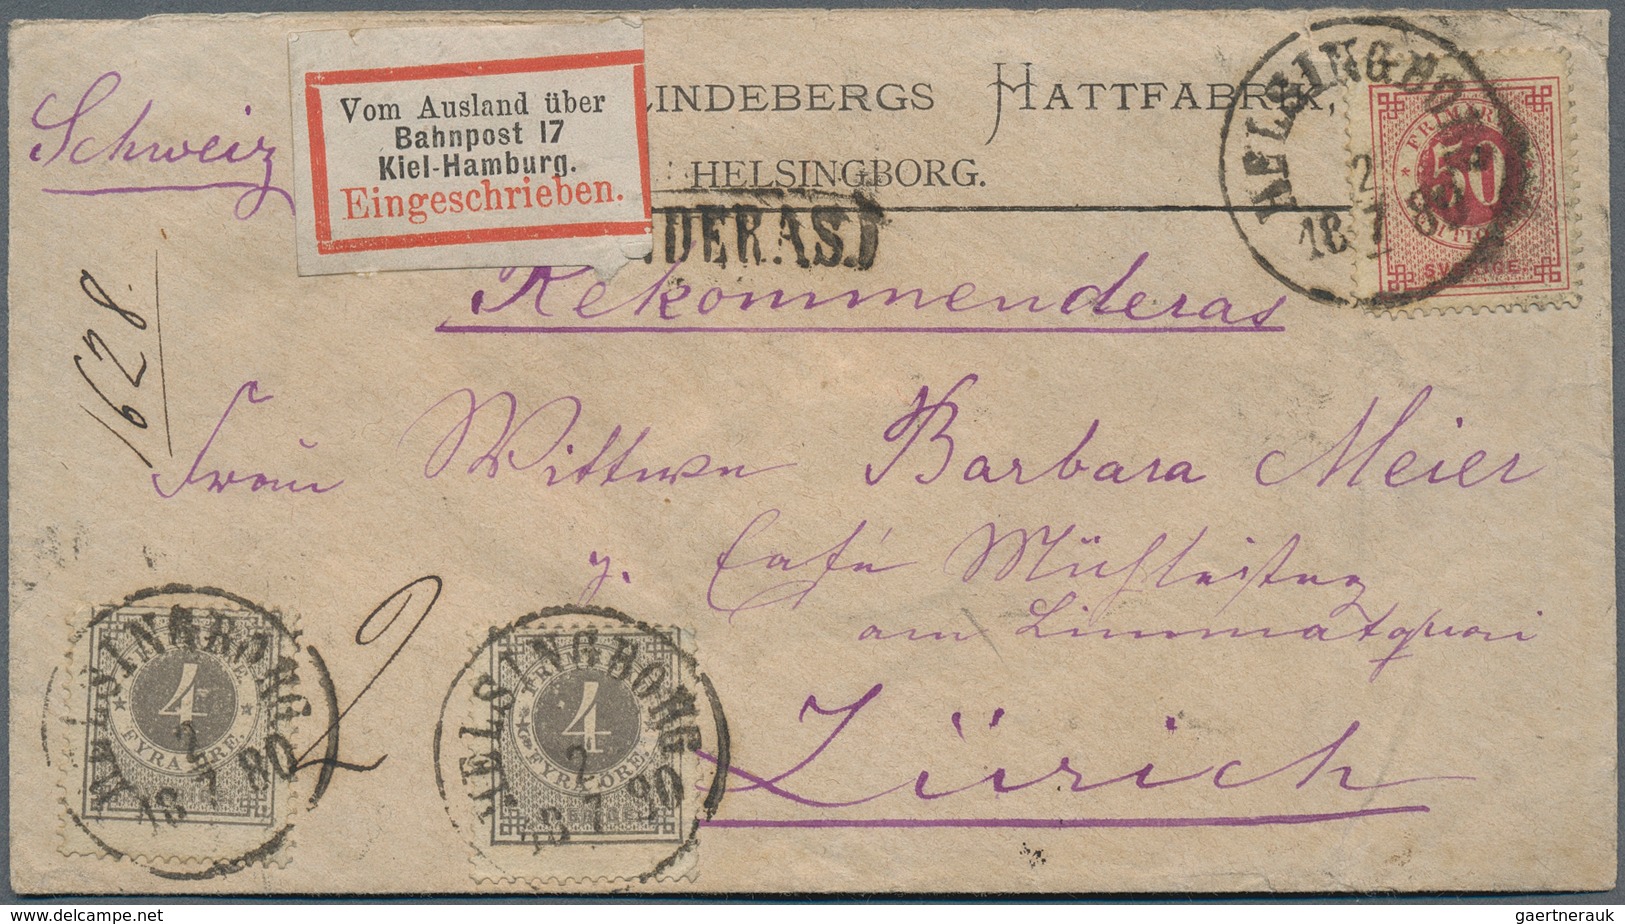 Schweiz
Vom Ausland über
Bahnpost 17
Kiel-Hamburg.
Eingeschrieben.
LINDEBERGS HATTFABRIK,
HELSINGBORG.
DERAS.
Rekommenderas
1628.
HELSINGBORG
2
18 7 80
FRIMÄRKE
50
SVERIGE
Frau Wittwe Barbara Meier
z. Café Mühlesteg
am Limmatquai
Zürich
HELSINGBORG
2
18 7 80
4
FYRA ÖRE.
2
HELSINGBORG
2
18 7 80
4
FYRA ÖRE.
SVERIGE
www.delcampe.net
gaertnerauk